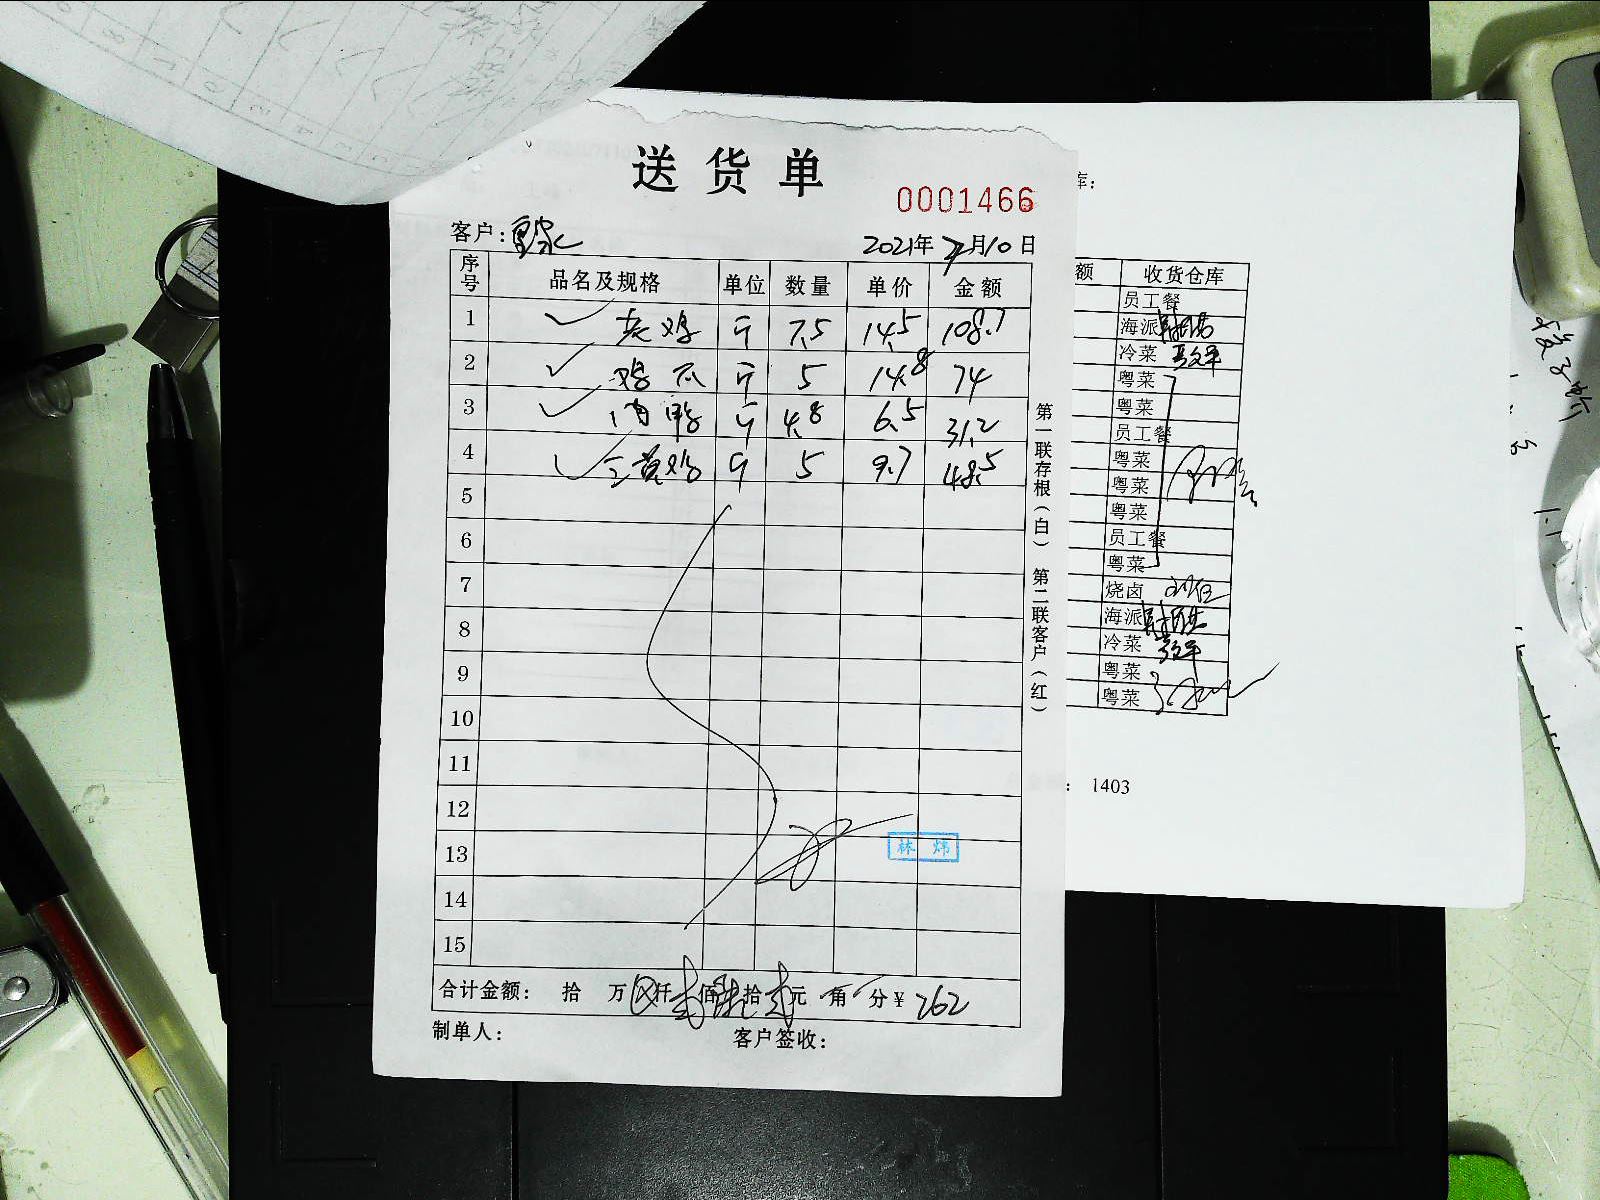 送货单
0001466
客户:
2021年7月10日
序号 品名及规格 单位 数量 单价 金额
1 老鸡 斤 7.5 14.5 108.7
2 鸡爪 斤 5 14.8 74
3 肉鸭 斤 4.8 6.5 31.2
4 三黄鸡 斤 5 9.7 48.5
5
6
7
8
9
10
11
12
13
14
15
林炜
合计金额: 拾 万 仟贰佰陆拾贰元 角 分¥ 262
制单人: 客户签收:
第一联存根(白) 第二联客户(红)
库:
额 收货仓库
员工餐
海派
冷菜
粤菜
粤菜
员工餐
粤菜
粤菜
粤菜
员工餐
粤菜
烧卤
海派
冷菜
粤菜
粤菜
: 1403